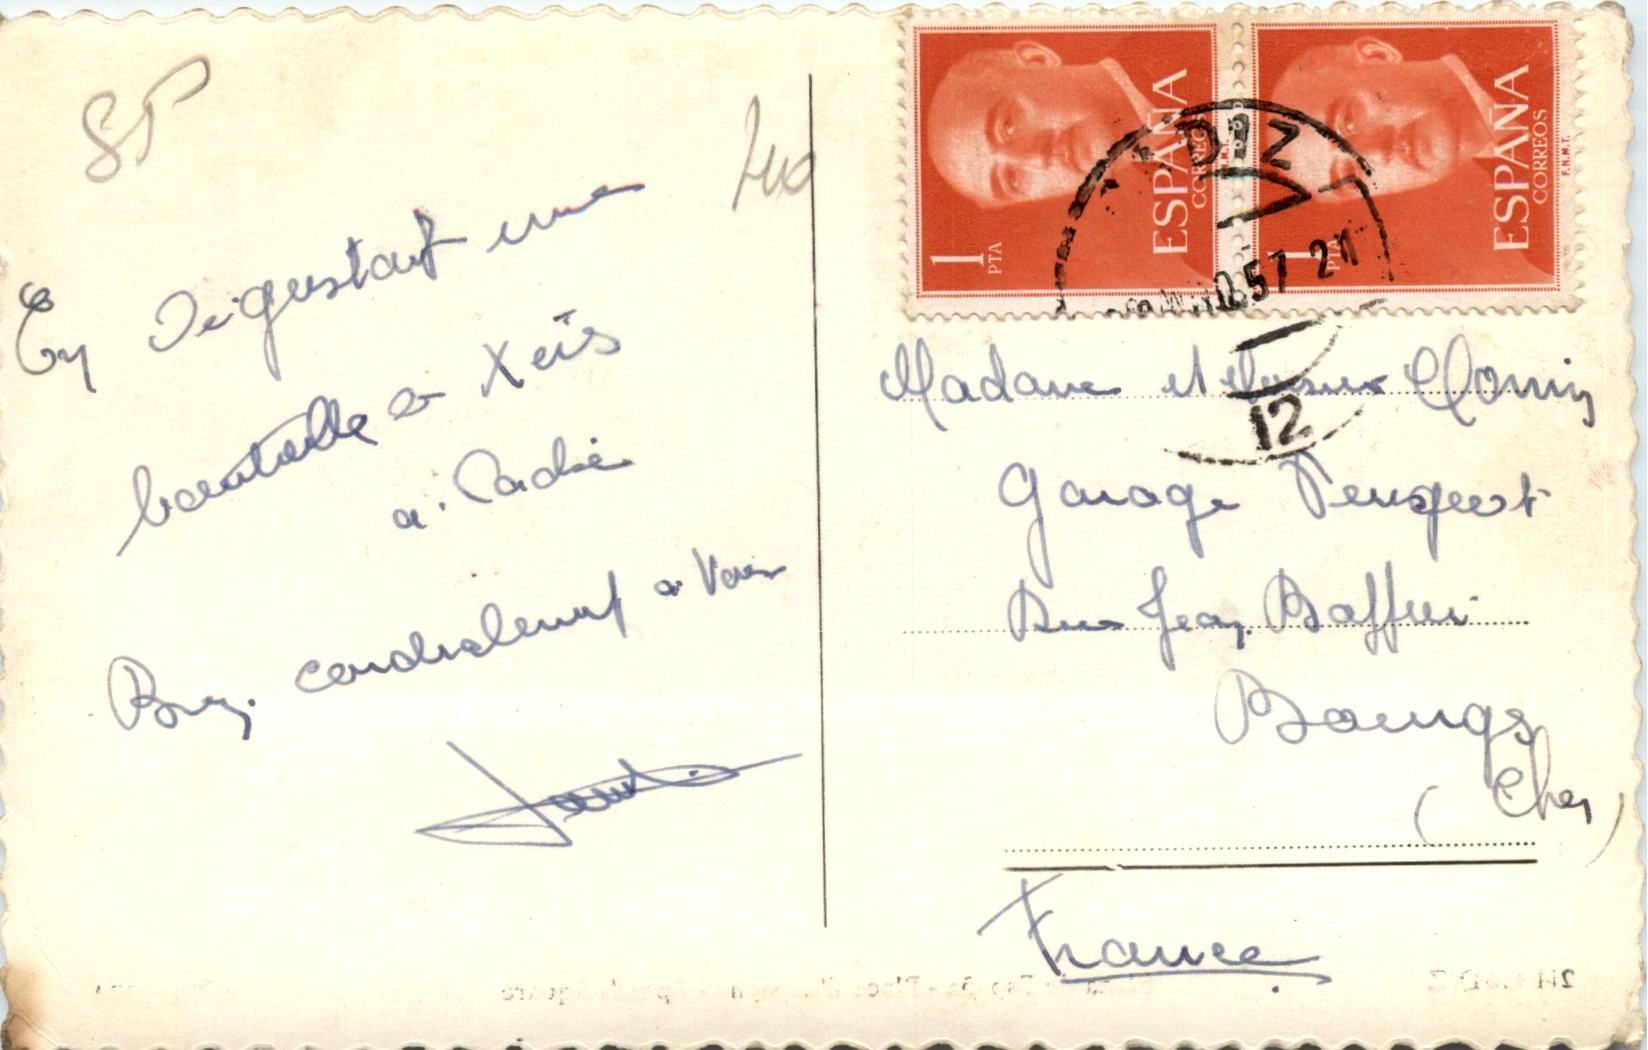 En dégustant une
bouteille de Xérès
à Cadix
Bien cordialement à vous
ESPAÑA
CORREOS
1
PTA
F.N.M.T.
ESPAÑA
CORREOS
1
PTA
F.N.M.T.
DIZ
57 21
12
Madame et Monsieur
Garage Peugeot
Rue Jean Baffier
Bourges
(Cher)
France